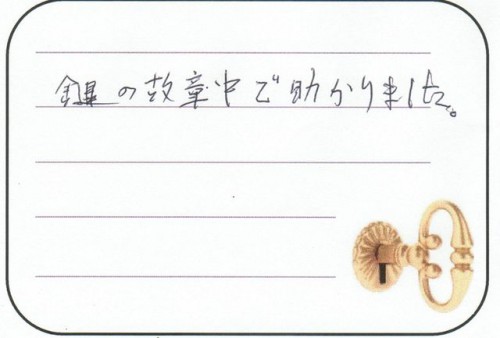 鍵の故章中で助かりました。